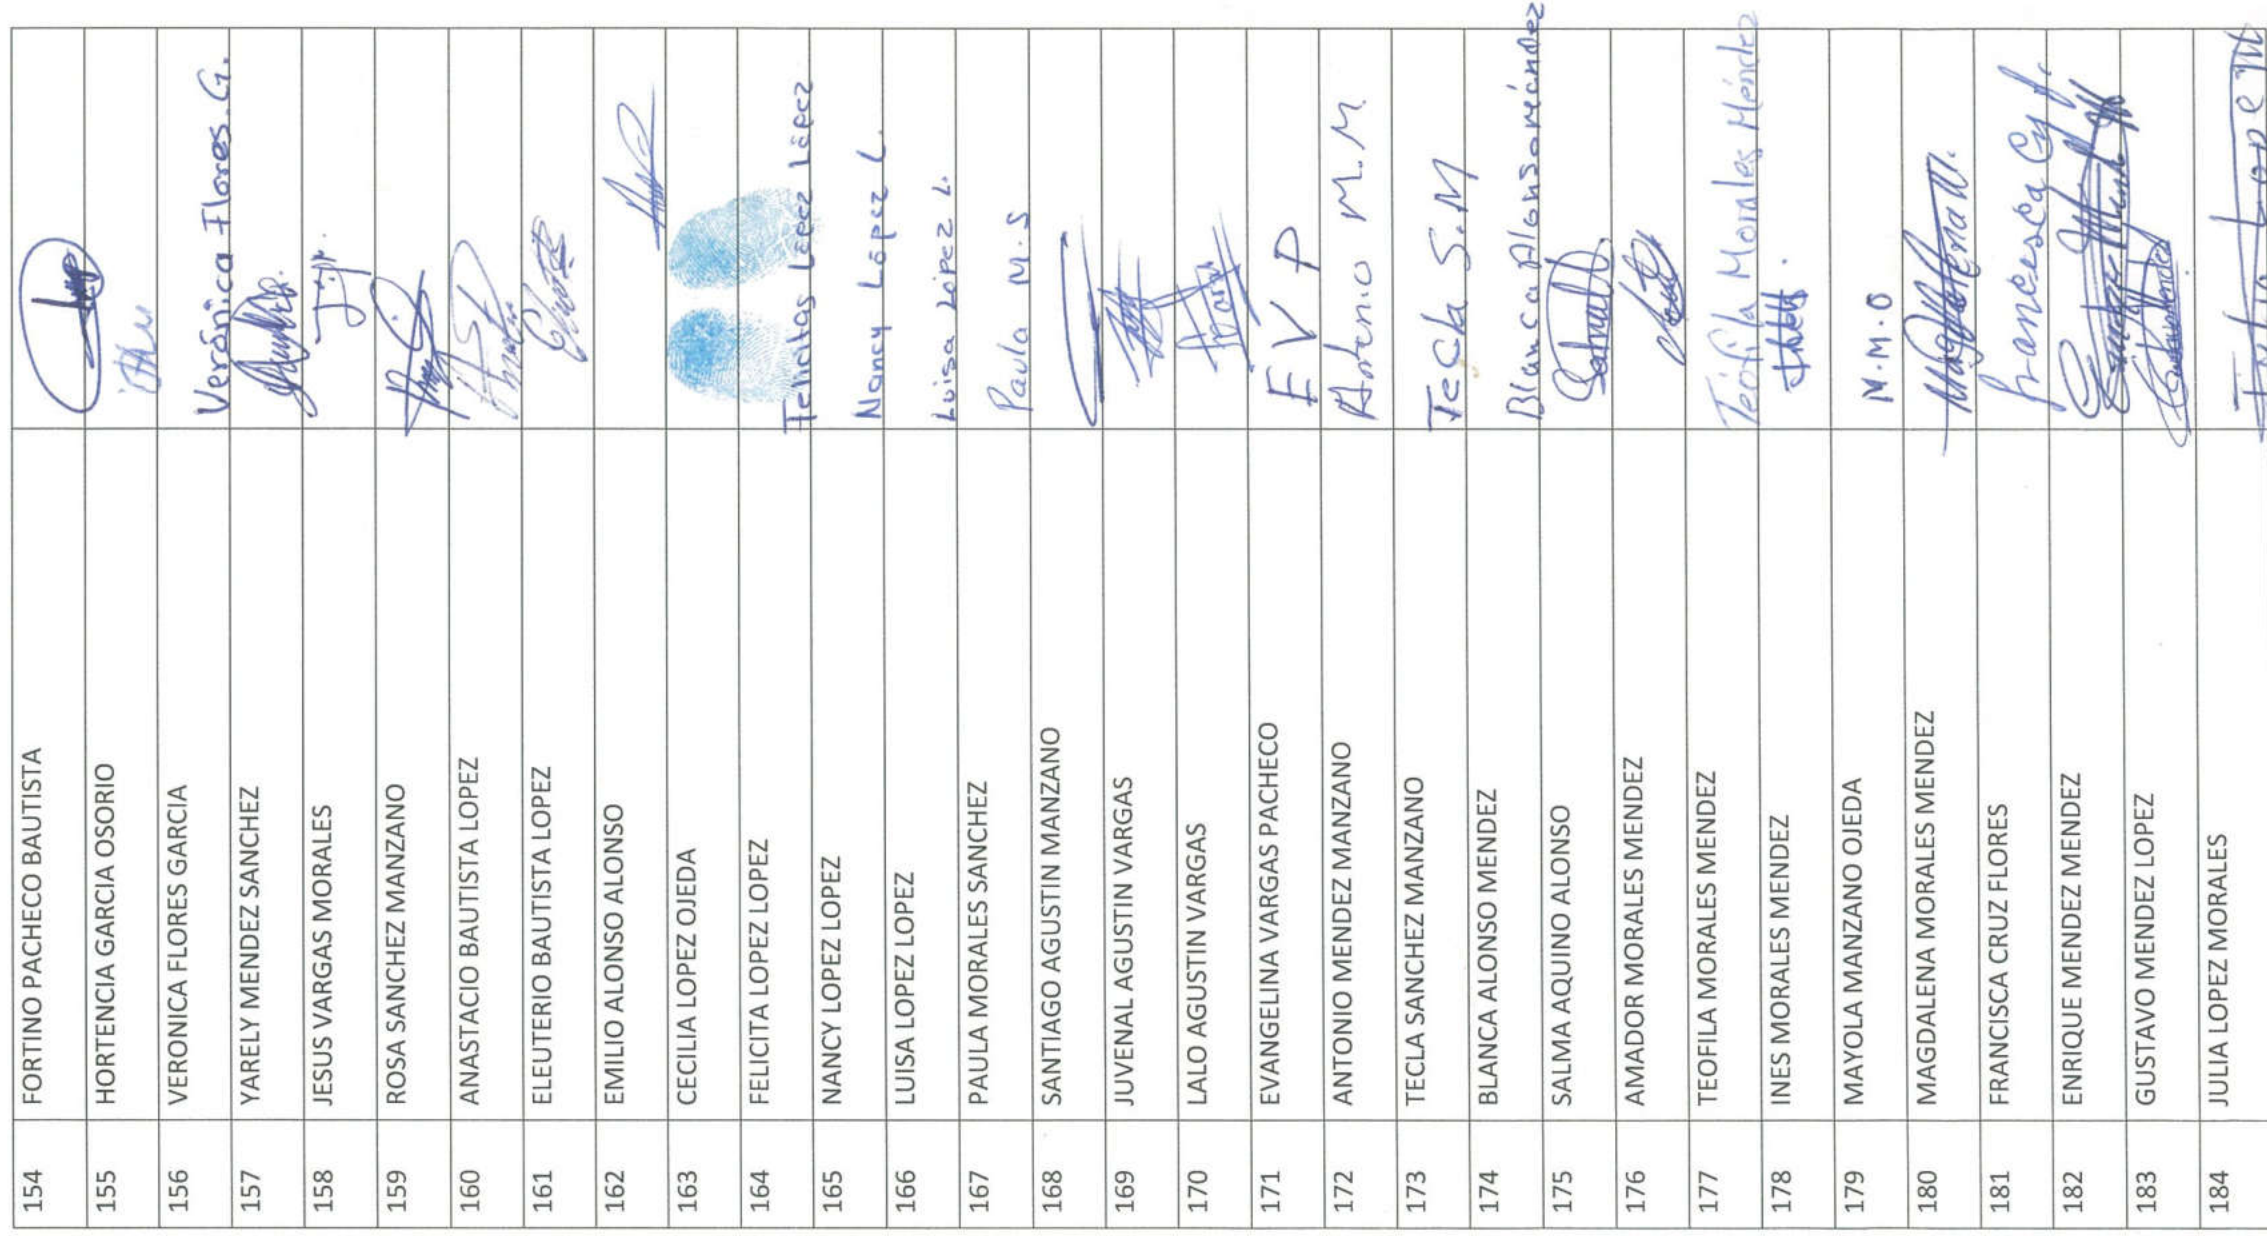 154 FORTINO PACHECO BAUTISTA
155 HORTENCIA GARCIA OSORIO
156 VERONICA FLORES GARCIA Verónica Flores.G.
157 YARELY MENDEZ SANCHEZ
158 JESUS VARGAS MORALES
159 ROSA SANCHEZ MANZANO
160 ANASTACIO BAUTISTA LOPEZ
161 ELEUTERIO BAUTISTA LOPEZ
162 EMILIO ALONSO ALONSO
163 CECILIA LOPEZ OJEDA
164 FELICITA LOPEZ LOPEZ López López
165 NANCY LOPEZ LOPEZ Nancy López L.
166 LUISA LOPEZ LOPEZ Luisa López L.
167 PAULA MORALES SANCHEZ Paula M.S
168 SANTIAGO AGUSTIN MANZANO
169 JUVENAL AGUSTIN VARGAS
170 LALO AGUSTIN VARGAS
171 EVANGELINA VARGAS PACHECO E V P
172 ANTONIO MENDEZ MANZANO Antonio M.M.
173 TECLA SANCHEZ MANZANO Tecla S.M
174 BLANCA ALONSO MENDEZ Blanca Alonso méndez
175 SALMA AQUINO ALONSO
176 AMADOR MORALES MENDEZ
177 TEOFILA MORALES MENDEZ Teófila Morales Méndez
178 INES MORALES MENDEZ
179 MAYOLA MANZANO OJEDA M.M.O
180 MAGDALENA MORALES MENDEZ
181 FRANCISCA CRUZ FLORES
182 ENRIQUE MENDEZ MENDEZ
183 GUSTAVO MENDEZ LOPEZ
184 JULIA LOPEZ MORALES